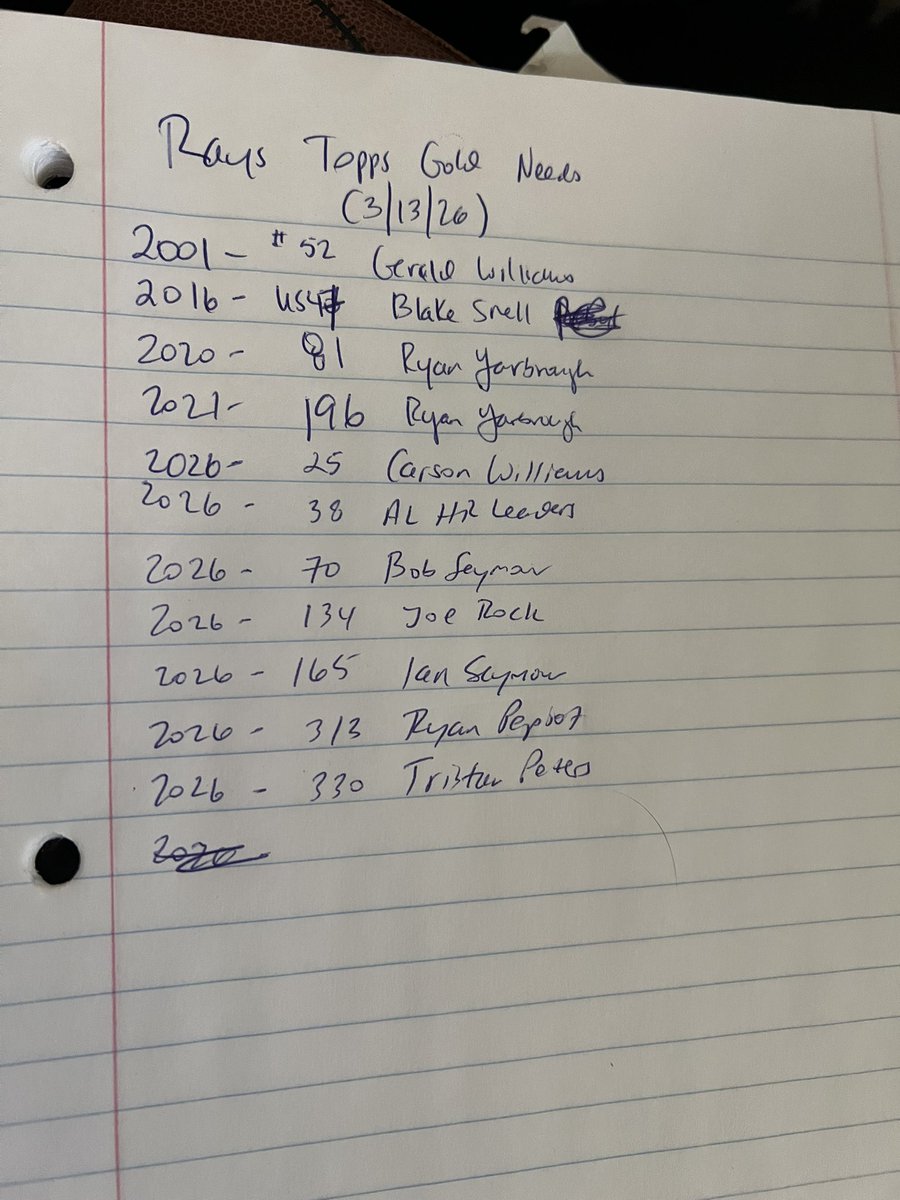 Rays Topps Gold Needs
(3/13/26)
2001 - #52 Gerald Williams
2016 - US47 Blake Snell
2020 - 81 Ryan Yarbrough
2021 - 196 Ryan Yarbrough
2026 - 25 Carson Williams
2026 - 38 AL HR Leaders
2026 - 70 Bob Seymour
2026 - 134 Joe Rock
2026 - 165 Ian Seymour
2026 - 313 Ryan Pepiot
2026 - 330 Tristan Peters